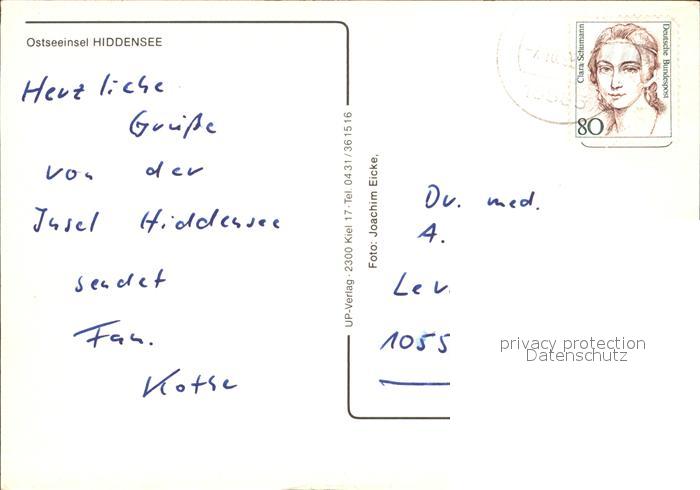 Ostseeinsel HIDDENSEE
Herzliche
Grüße
von der
Insel Hiddensee
sendet
Fam.
Kothe
UP-Verlag · 2300 Kiel 17 · Tel. 04 31 / 36 15 16
Foto: Joachim Eicke,
Clara Schumann
Deutsche Bundespost
80
Dr. med.
A.
Lev
1055
privacy protection
Datenschutz